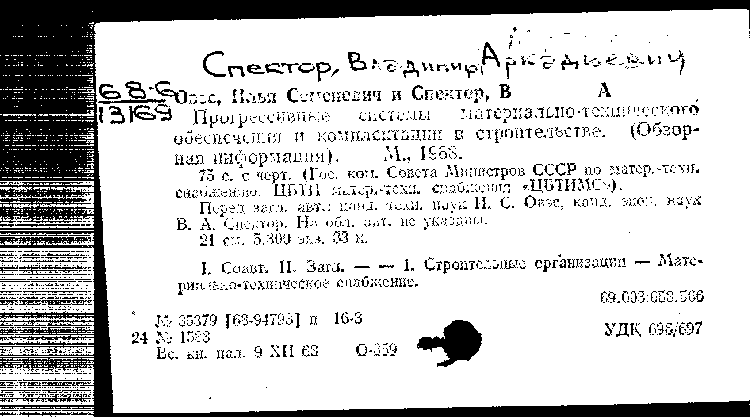 Спектор, Владимир Аркадиевич
68-6
13169
Овэс, Илья Семенович и Спектор, В А
Прогрессивные системы материально-технического
обеспечения и комплектации в строительстве. (Обзор-
ная информация). М., 1968.
75 с. с черт. (Гос. ком. Совета Министров СССР по матер.-техн.
снабжению. ЦБТИ матер.-техн. снабжения «ЦБТИМС»).
Перед загл. авт.: канд. техн. наук И. С. Овэс, канд. экон. наук
В. А. Спектор. На обл. авт. не указаны.
21 см. 5.300 экз. 33 к.
I. Соавт. II. Загл. — — 1. Строительные организации — Мате-
риально-техническое снабжение.
69.003:658.566
№ 35379 [68-94793] п 16-3
УДК 696/697
24 №
Вс. кн. пал. 9 XII 68 О-359